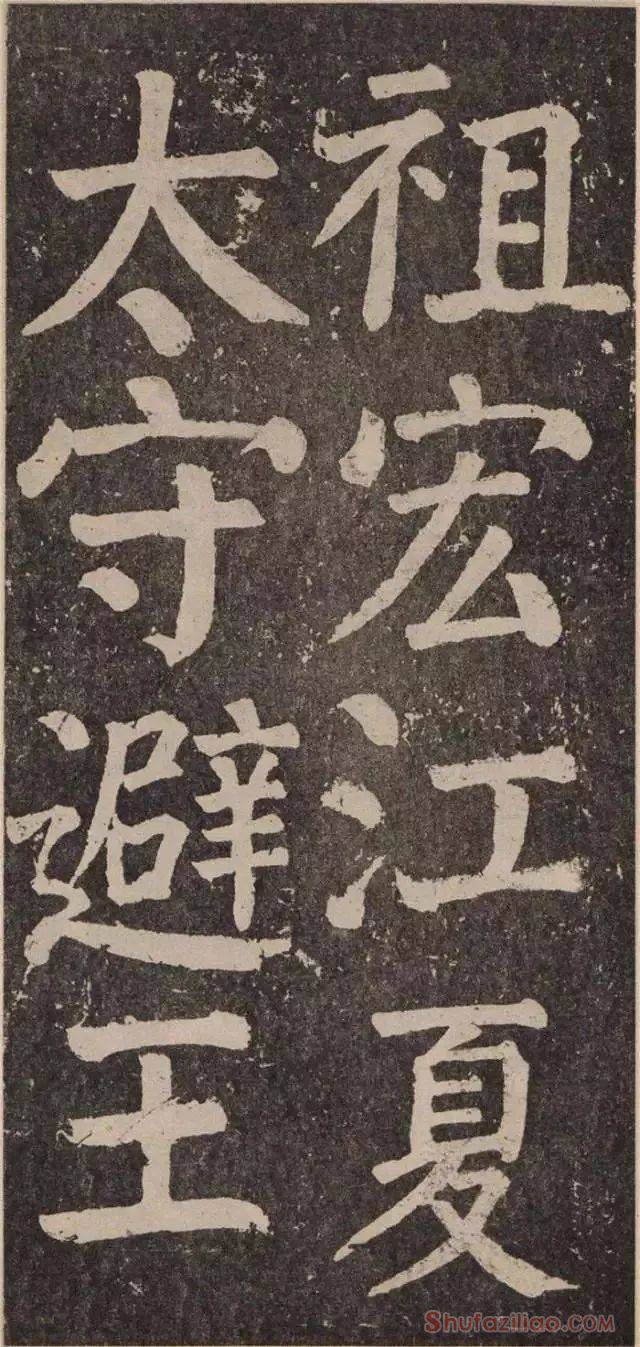 祖宏江夏
太守避王
Shufaziliao.com